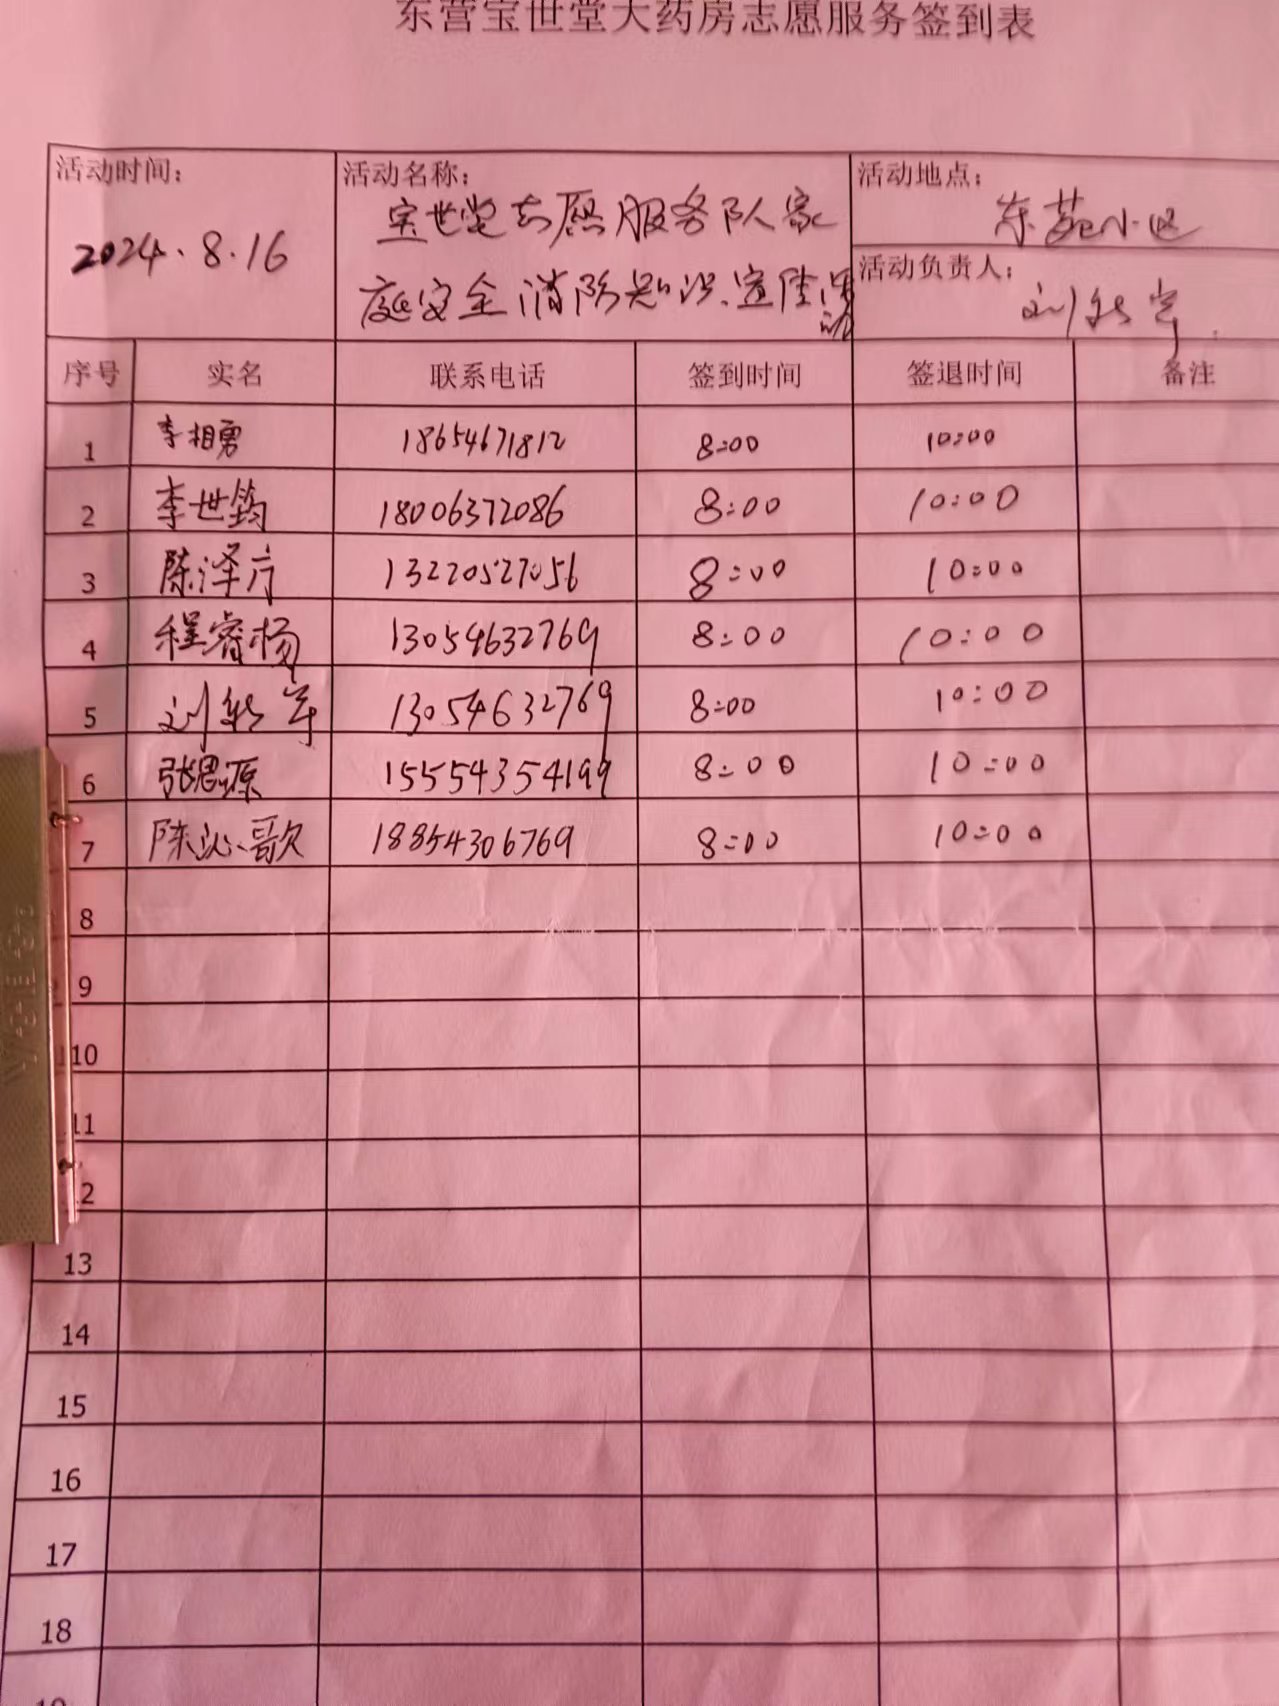 东营宝世堂大药房志愿服务签到表
活动时间： 活动名称： 活动地点：
2024.8.16 宝世堂志愿服务队家庭安全消防知识宣传活动 东苑小区
活动负责人：
刘
序号 实名 联系电话 签到时间 签退时间 备注
1 李相勇 18654671812 8:00 10:00
2 李世筠 18006372086 8:00 10:00
3 陈泽 13220527056 8:00 10:00
4 程睿杨 13054632769 8:00 10:00
5 刘 13054632769 8:00 10:00
6 张思源 15554354199 8:00 10:00
7 陈沁歌 18854306769 8:00 10:00
8
9
10
11
12
13
14
15
16
17
18
19